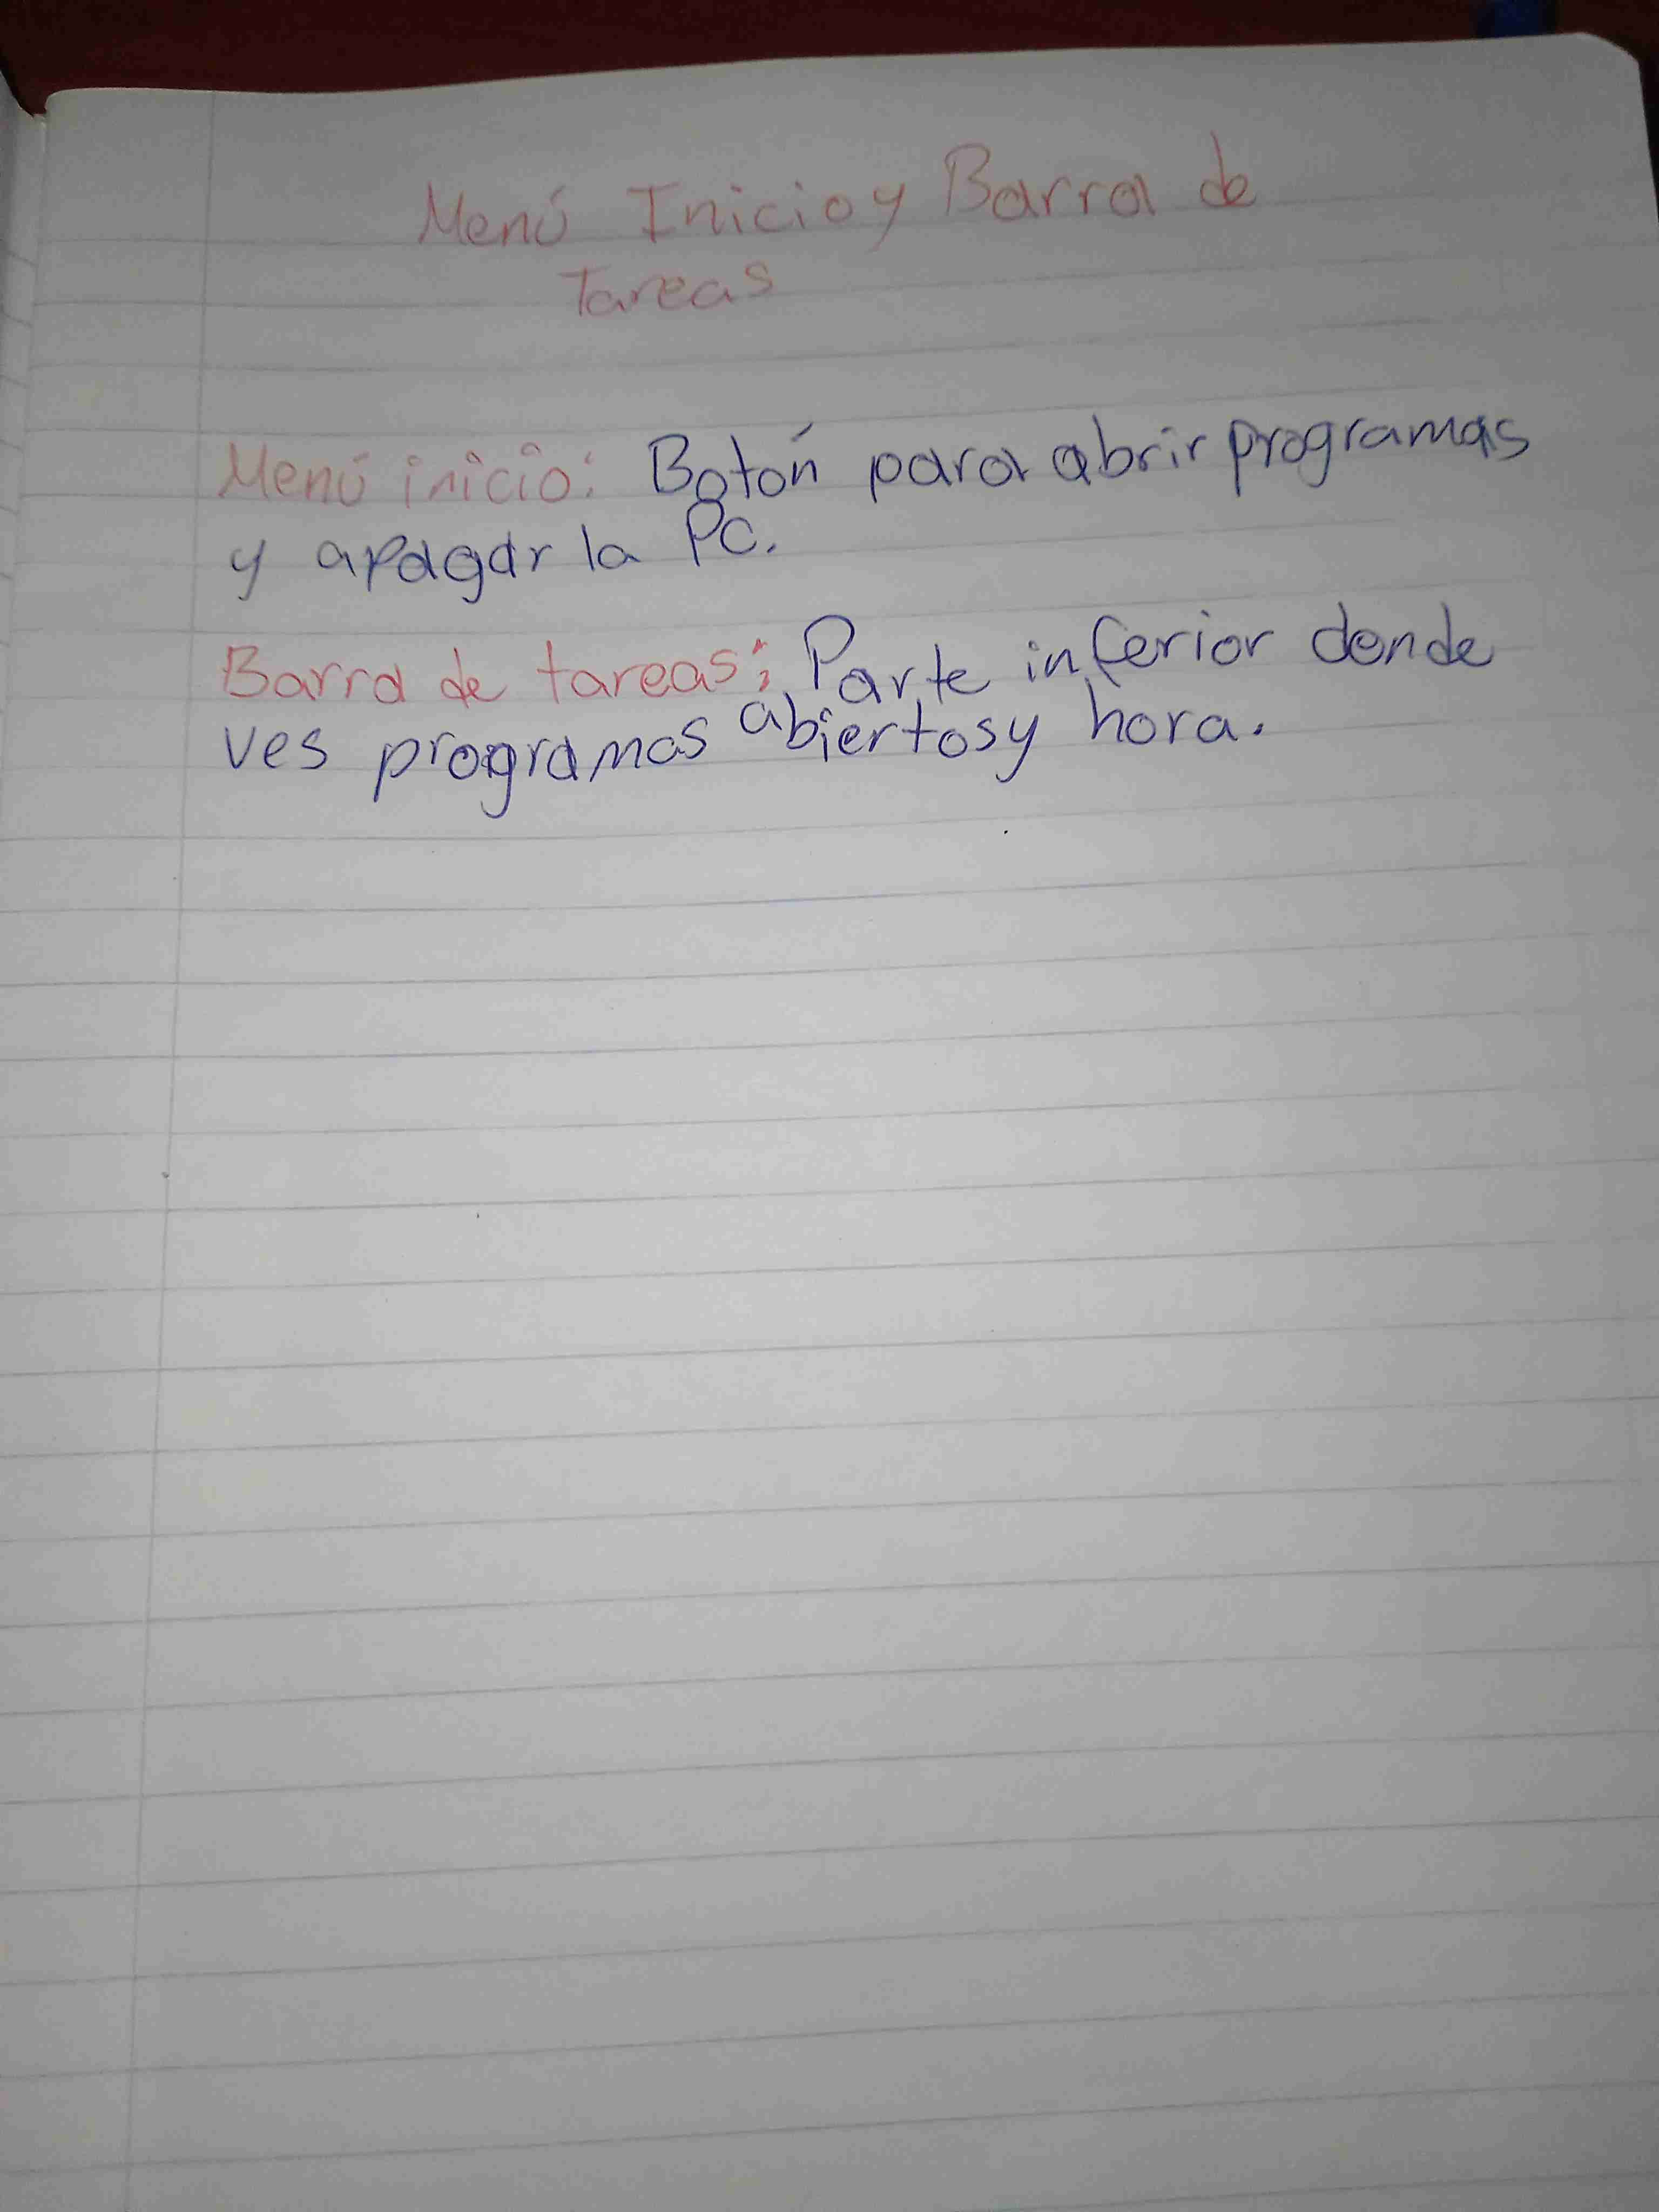 Menú Inicio y Barra de
Tareas
Menú inicio: Botón para abrir programas
y apagar la PC.
Barra de tareas: Parte inferior donde
ves programas abiertos y hora.